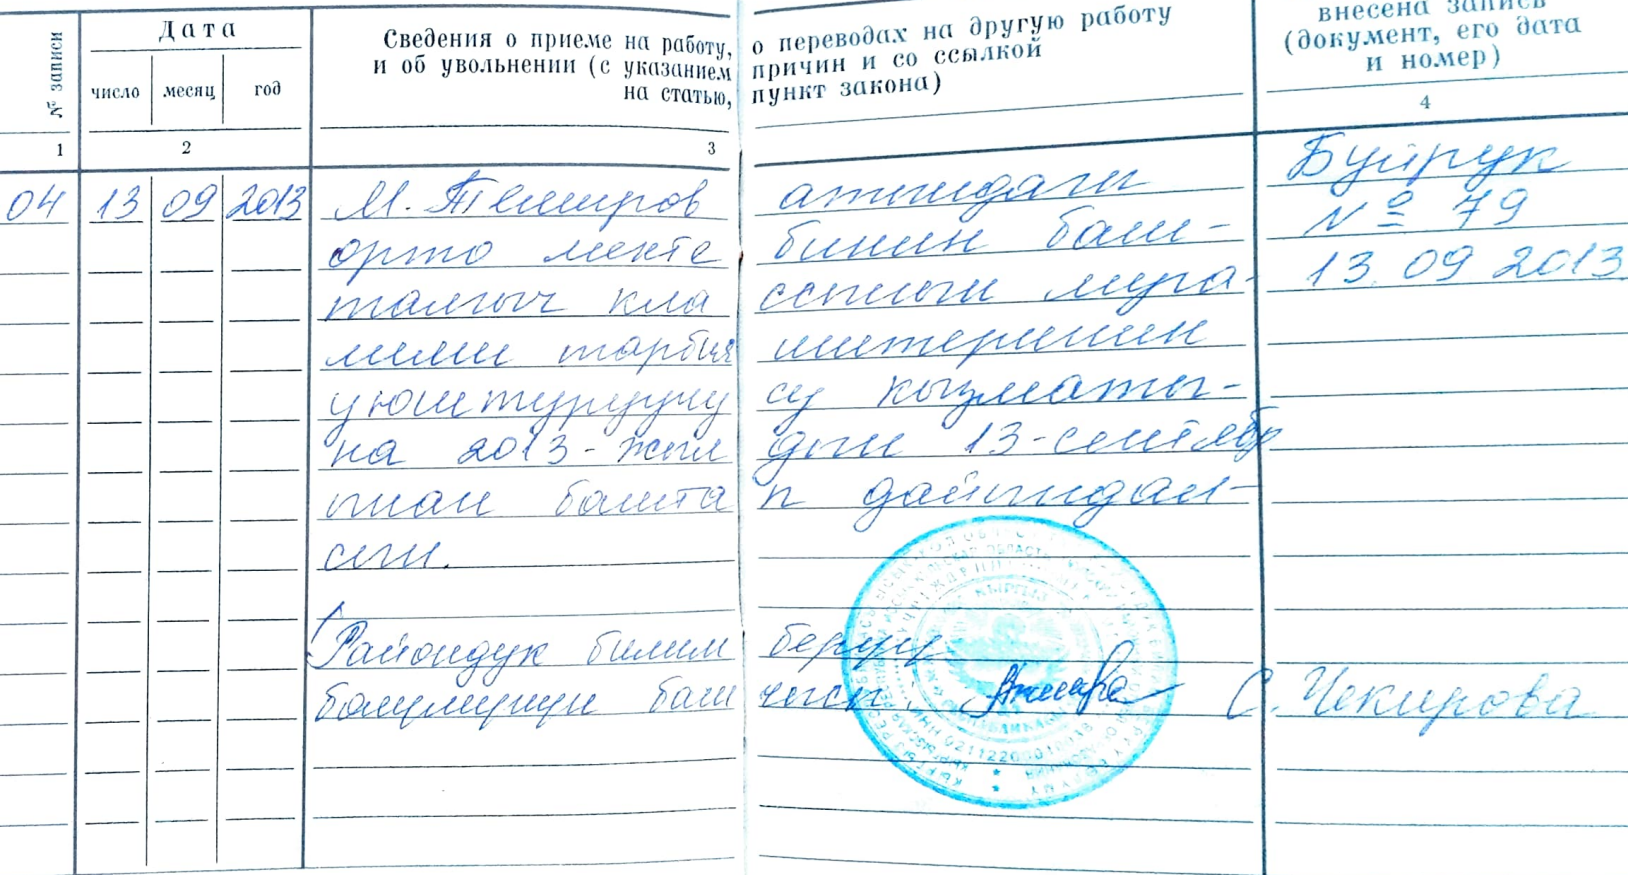 № записи
Дата
число месяц год
Сведения о приеме на работу, о переводах на другую работу
и об увольнении (с указанием причин и со ссылкой
на статью, пункт закона)
внесена запись
(документ, его дата
и номер)
1 2 3 4
04 13 09 2013 М. Темиров атындагы Буйрук
орто мекте бинин баш- № 79
талгыч кла ссынын муга- 13.09 2013
лими тарбия иштеринин
уюштуруучу су кызматы-
на 2013-жыл дын 13-сентябр
ынан башта п дайындал-
сын.
Райондук билим берүү
бөлүмүнүн баш чысы. С. Чекирова